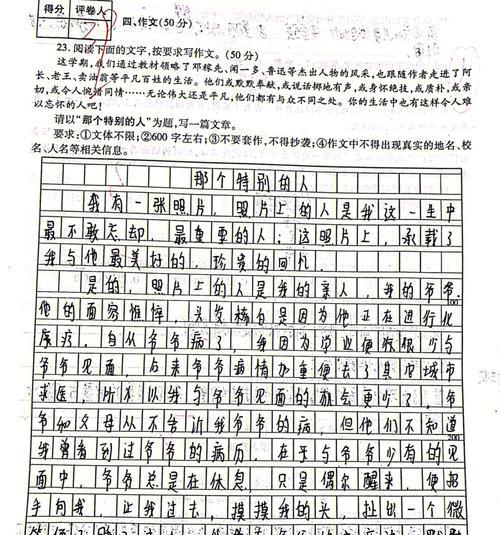 得分 评卷人
四、作文(50分)
23. 阅读下面的文字,按要求写作文。(50分)
这学期,我们通过教材领略了邓稼先、闻一多、鲁迅等杰出人物的风采,也跟随作者走进了阿
长、老王、卖油翁等平凡百姓的生活。他们或默默奉献,或说话掷地有声,或身怀绝技,或质朴,或亲
切,或令人惋惜同情……无论伟大还是平凡,他们都有与众不同之处。你的生活中也有这样令人难
以忘怀的人吧!
请以“那个特别的人”为题,写一篇文章。
要求:①文体不限;②600字左右;③不要套作,不得抄袭;④作文中不得出现真实的地名、校
名、人名等相关信息。
那个特别的人
我有一张照片,照片上的人是我这一生中
最不敢忘却、最重要的人;这照片上,承载了
我与他最美好的、珍贵的回忆。
是的,照片上的人是我的亲人,我的爷爷。
100
他的面容憔悴,头发稀白是因为他正在进行化
疗,自从爷爷病了,我因为学业便很少与
爷爷见面,后来爷爷病情加重便去了其它城市
求医,所以我与爷爷见面的机会更少了,爷
爷和父母从不告诉我爷爷的病,但他们不知道
200
我曾看到过爷爷的病历。在于与爷爷少有的见
面中,爷爷总是在休息,只是偶尔醒来,便招
手向我,让我过去,摸摸我的头,扯出一个微